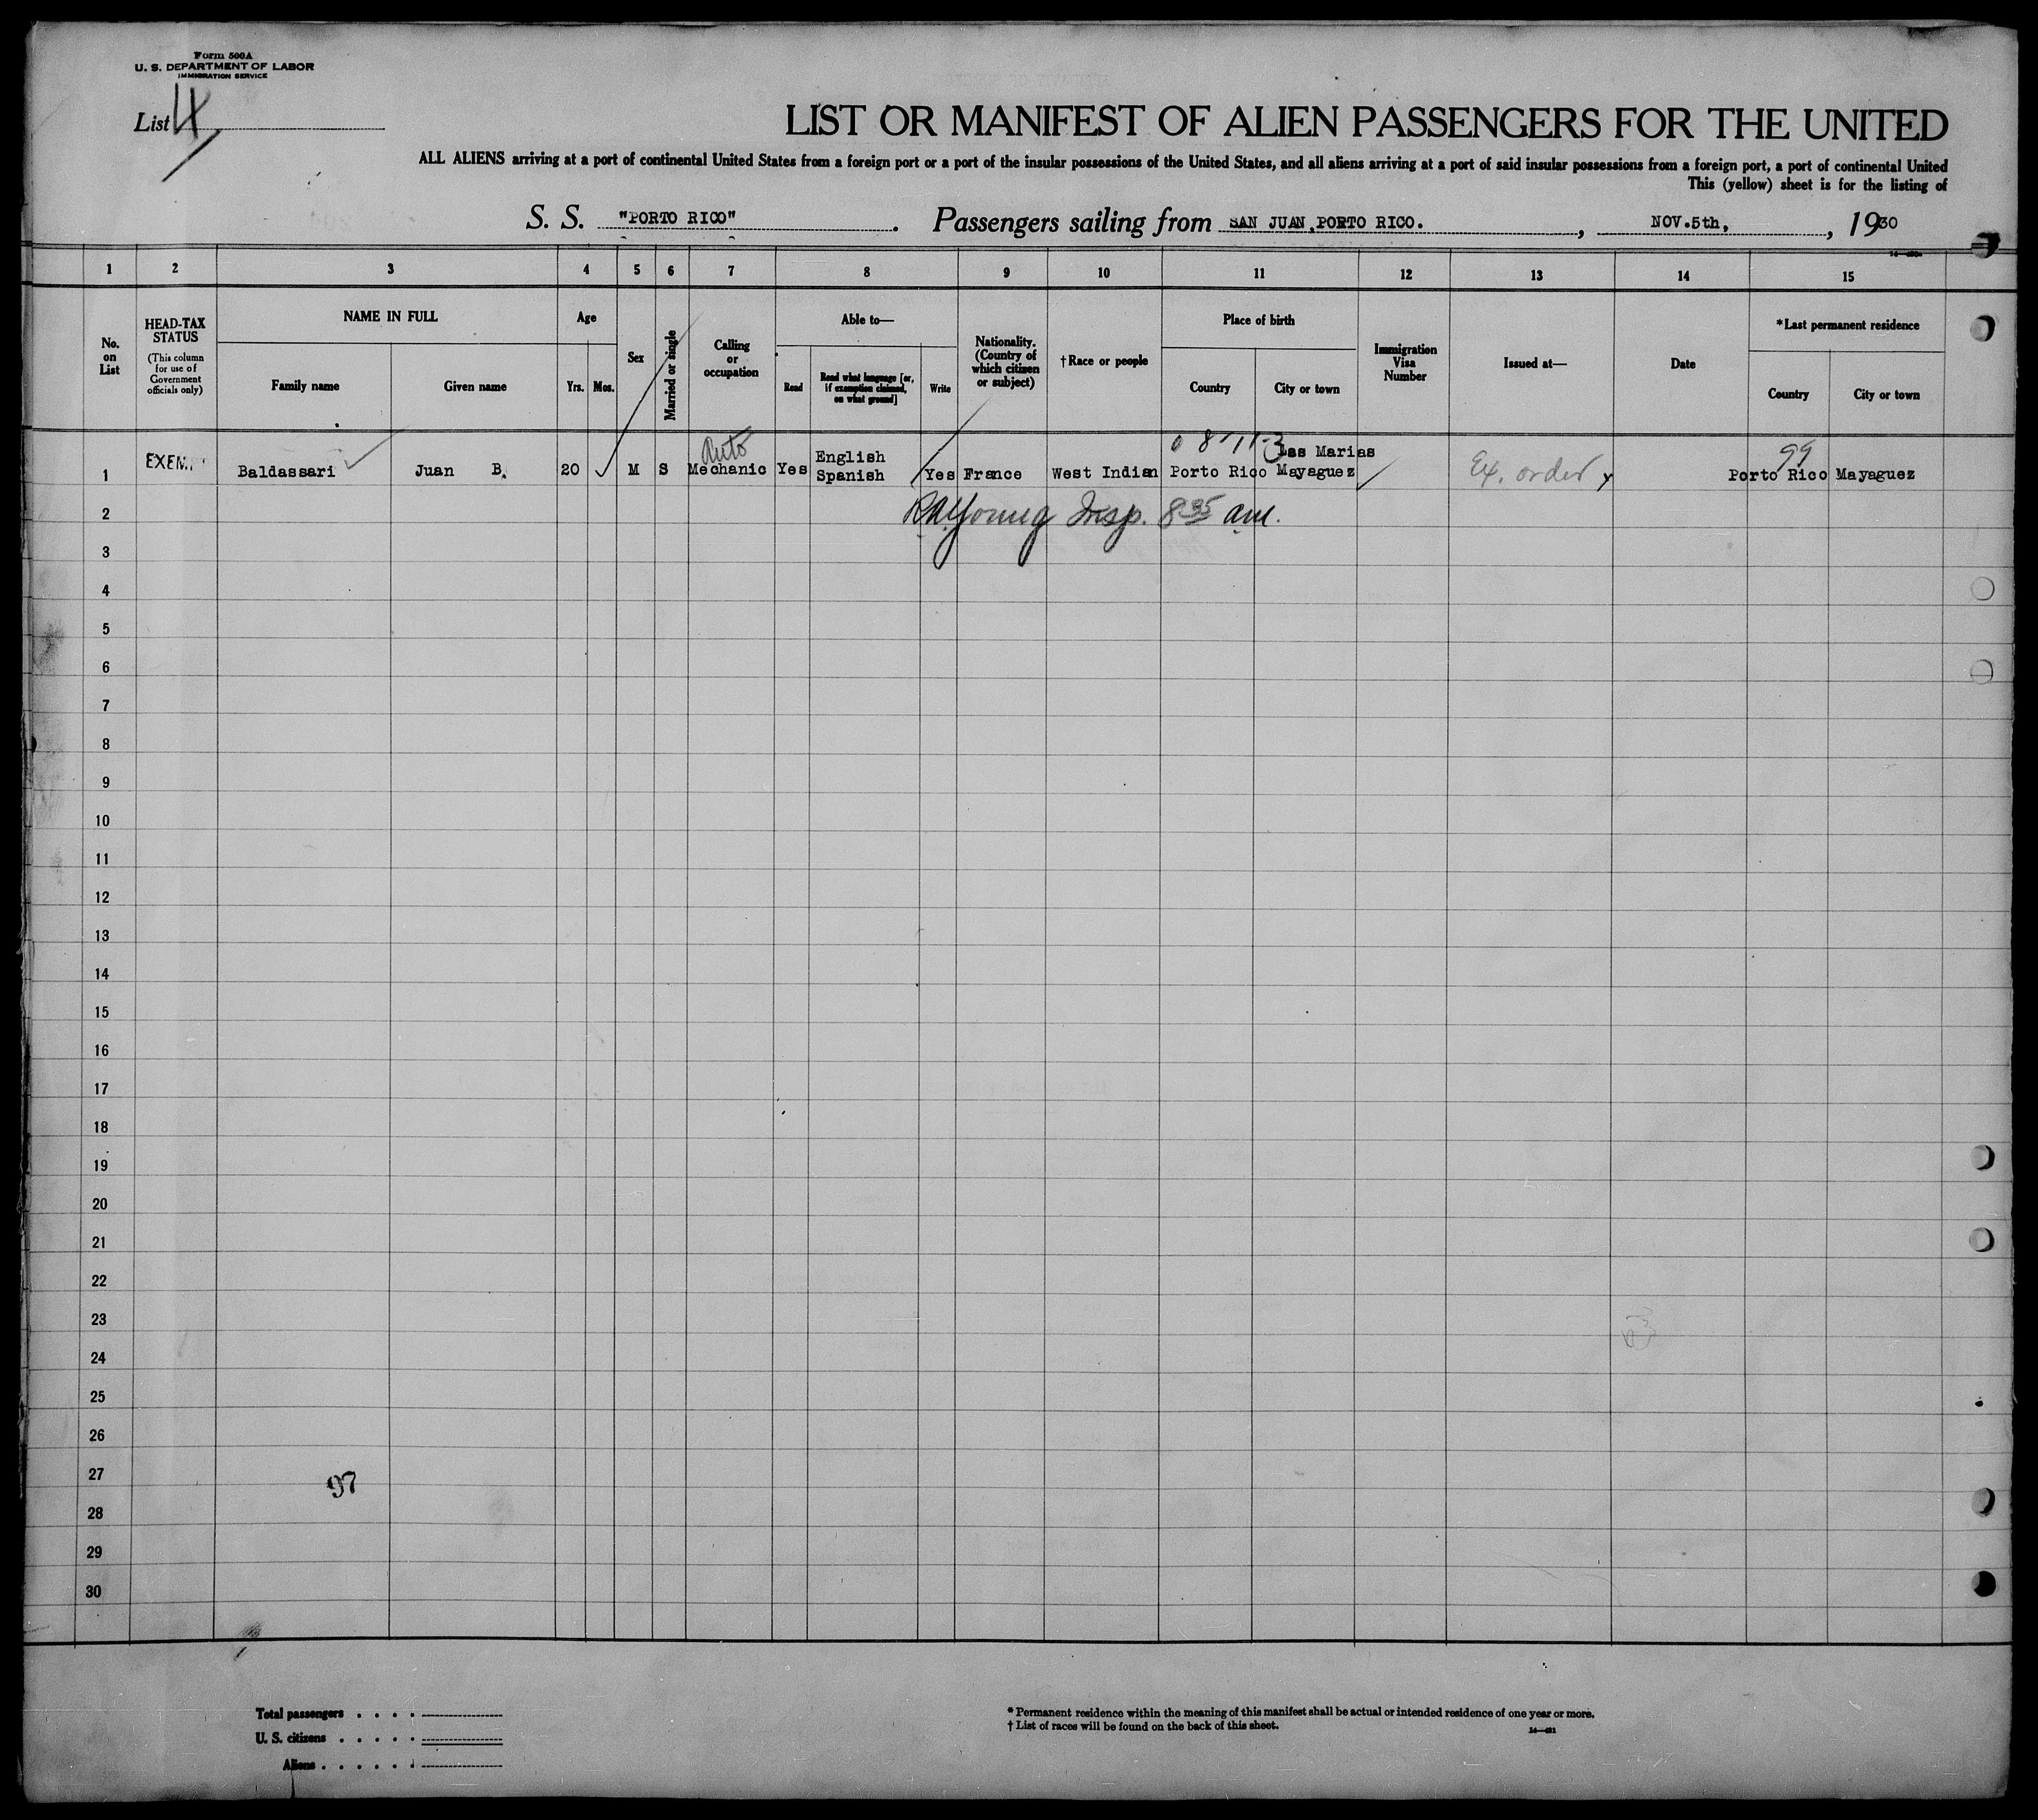 Form 500A
U. S. DEPARTMENT OF LABOR
IMMIGRATION SERVICE
List 4
LIST OR MANIFEST OF ALIEN PASSENGERS FOR THE UNITED
ALL ALIENS arriving at a port of continental United States from a foreign port or a port of the insular possessions of the United States, and all aliens arriving at a port of said insular possessions from a foreign port, a port of continental United
This (yellow) sheet is for the listing of
S. S. "PORTO RICO". Passengers sailing from SAN JUAN, PORTO RICO. , NOV.5th, , 1930
1 2 3 4 5 6 7 8 9 10 11 12 13 14 15
No. on List
HEAD-TAX STATUS
(This column for use of Government officials only)
NAME IN FULL
Family name
Given name
Age
Yrs.
Mos.
Sex
Married or single
Calling or occupation
Able to—
Read
Read what language [or, if exemption claimed, on what ground]
Write
Nationality. (Country of which citizen or subject)
†Race or people
Place of birth
Country
City or town
Immigration Visa Number
Issued at—
Date
*Last permanent residence
Country
City or town
Auto
Las Marias
99
1 EXEMP Baldassari Juan B. 20 M S Mechanic Yes English Spanish Yes France West Indian Porto Rico Mayaguez Ex. order Porto Rico Mayaguez
2 RAYoung Insp. 8 35 am.
3
4
5
6
7
8
9
10
11
12
13
14
15
16
17
18
19
20
21
22
23
24
25
26
27
97
28
29
30
Total passengers . . . .
U. S. citizens . . . . .
Aliens . . . . . .
* Permanent residence within the meaning of this manifest shall be actual or intended residence of one year or more.
† List of races will be found on the back of this sheet.